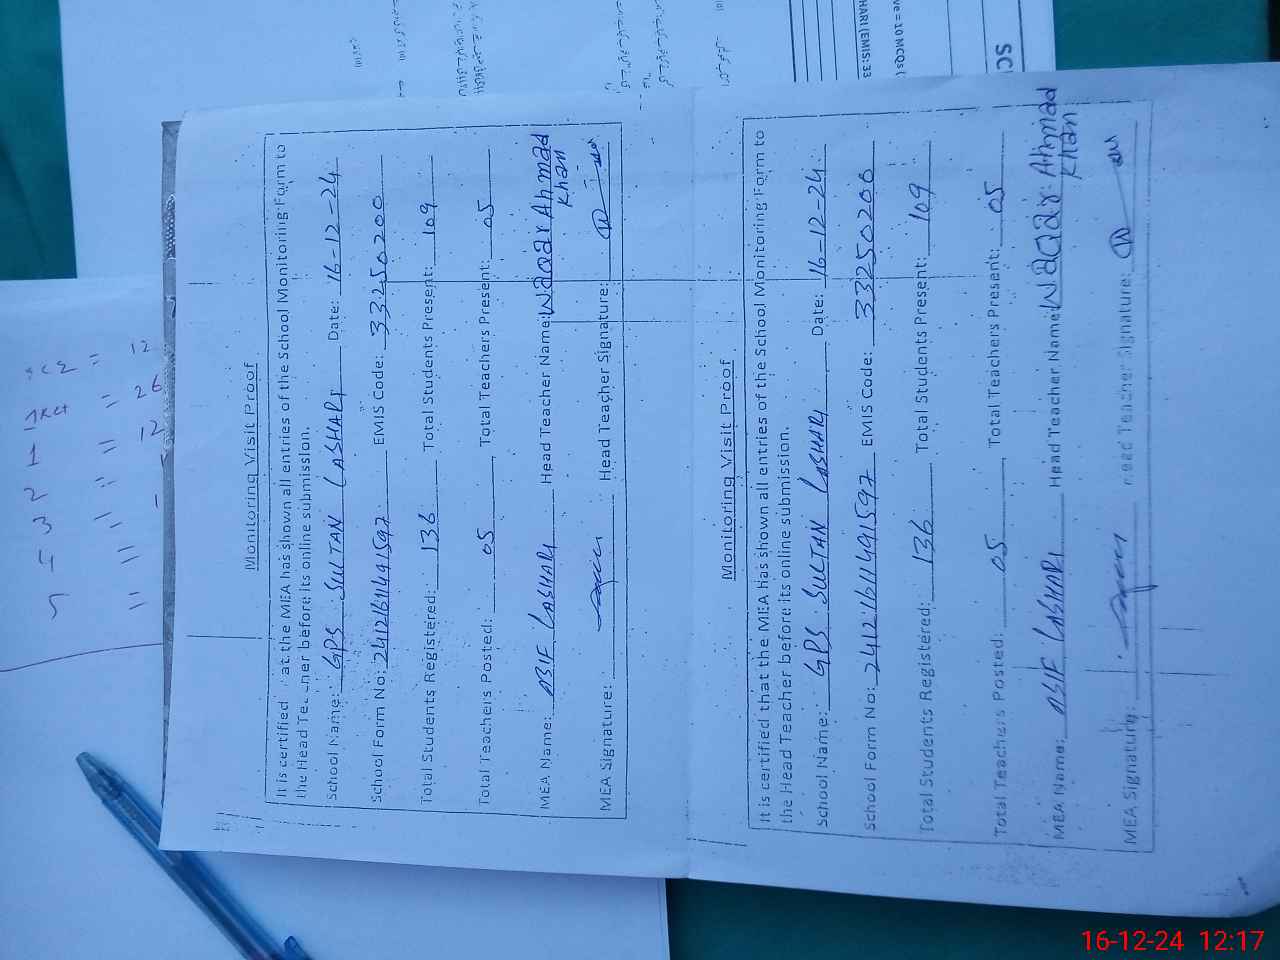 Monitoring Visit Proof
It is certified at the MEA has shown all entries of the School Monitoring Form to
the Head Teacher before its online submission.
School Name: GPS SULTAN LASHARI Date: 16-12-24
School Form No: 24121611491597 EMIS Code: 33250200
Total Students Registered: 136 Total Students Present: 109
Total Teachers Posted: 05 Total Teachers Present: 05
MEA Name: ASIF LASHARI Head Teacher Name: Waqar Ahmad Khan
MEA Signature: Head Teacher Signature:
Monitoring Visit Proof
It is certified that the MEA has shown all entries of the School Monitoring Form to
the Head Teacher before its online submission.
School Name: GPS SULTAN LASHARI Date: 16-12-24
School Form No: 24121611491597 EMIS Code: 33250200
Total Students Registered: 136 Total Students Present: 109
Total Teachers Posted: 05 Total Teachers Present: 05
MEA Name: ASIF LASHARI Head Teacher Name: Waqar Ahmad Khan
MEA Signature: Head Teacher Signature:
= 12
= 26
1 = 12
2 =
3 =
HARI (EMIS: 33
ve = 10 MCQs (
16-12-24 12:17